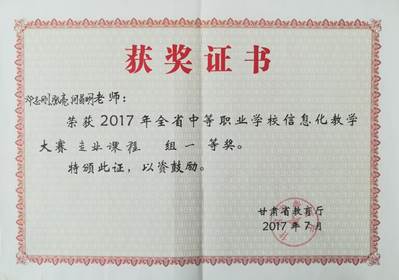 获奖证书
老师：
荣获2017年全省中等职业学校信息化教学
大赛 专业课程 组 一 等奖。
特颁此证，以资鼓励。
甘肃省教育厅
2017年7月